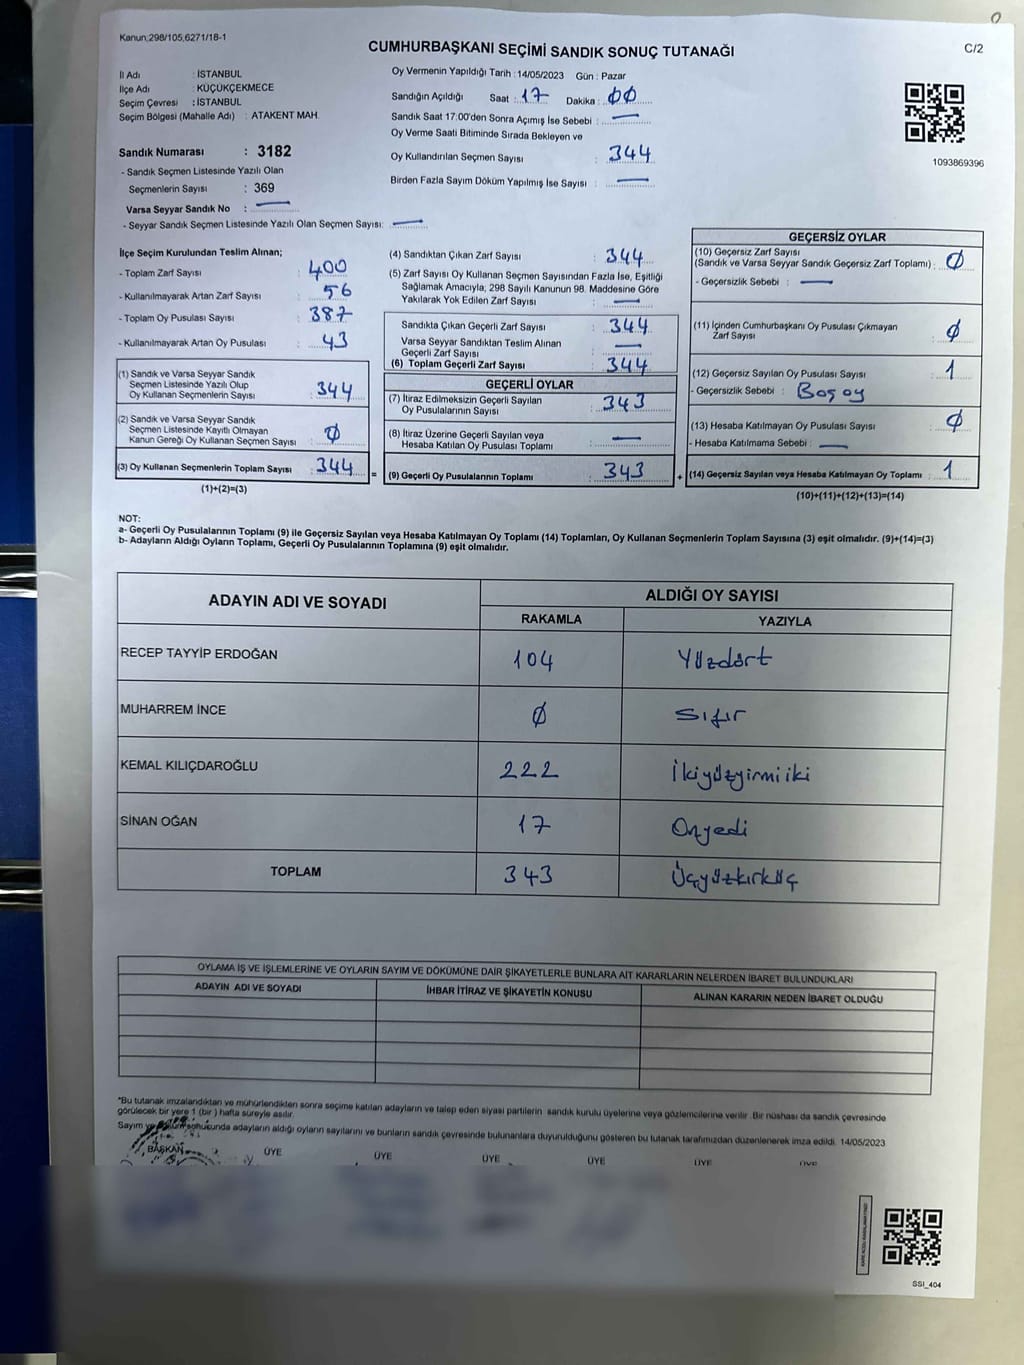 Kanun;298/105,6271/18-1
CUMHURBAŞKANI SEÇİMİ SANDIK SONUÇ TUTANAĞI
C/2
İl Adı : İSTANBUL
İlçe Adı : KÜÇÜKÇEKMECE
Seçim Çevresi : İSTANBUL
Seçim Bölgesi (Mahalle Adı) : ATAKENT MAH.
Sandık Numarası : 3182
- Sandık Seçmen Listesinde Yazılı Olan
Seçmenlerin Sayısı : 369
Varsa Seyyar Sandık No : —
- Seyyar Sandık Seçmen Listesinde Yazılı Olan Seçmen Sayısı: —
Oy Vermenin Yapıldığı Tarih : 14/05/2023 Gün : Pazar
Sandığın Açıldığı Saat : 17 Dakika : 00
Sandık Saat 17:00'den Sonra Açımış İse Sebebi : —
Oy Verme Saati Bitiminde Sırada Bekleyen ve
Oy Kullandırılan Seçmen Sayısı : 344
Birden Fazla Sayım Döküm Yapılmış İse Sayısı : —
1093869396
İlçe Seçim Kurulundan Teslim Alınan;
- Toplam Zarf Sayısı : 400
- Kullanılmayarak Artan Zarf Sayısı : 56
- Toplam Oy Pusulası Sayısı : 387
- Kullanılmayarak Artan Oy Pusulası : 43
(1) Sandık ve Varsa Seyyar Sandık
Seçmen Listesinde Yazılı Olup
Oy Kullanan Seçmenlerin Sayısı : 344
(2) Sandık ve Varsa Seyyar Sandık
Seçmen Listesinde Kayıtlı Olmayan
Kanun Gereği Oy Kullanan Seçmen Sayısı : 0
(3) Oy Kullanan Seçmenlerin Toplam Sayısı : 344 =
(1)+(2)=(3)
(4) Sandıktan Çıkan Zarf Sayısı : 344
(5) Zarf Sayısı Oy Kullanan Seçmen Sayısından Fazla İse, Eşitliği
Sağlamak Amacıyla; 298 Sayılı Kanunun 98. Maddesine Göre
Yakılarak Yok Edilen Zarf Sayısı : —
Sandıkta Çıkan Geçerli Zarf Sayısı : 344
Varsa Seyyar Sandıktan Teslim Alınan
Geçerli Zarf Sayısı : —
(6) Toplam Geçerli Zarf Sayısı : 344
GEÇERLİ OYLAR
(7) İtiraz Edilmeksizin Geçerli Sayılan
Oy Pusulalarının Sayısı : 343
(8) İtiraz Üzerine Geçerli Sayılan veya
Hesaba Katılan Oy Pusulası Toplamı : —
(9) Geçerli Oy Pusulalarının Toplamı : 343 +
GEÇERSİZ OYLAR
(10) Geçersiz Zarf Sayısı
(Sandık ve Varsa Seyyar Sandık Geçersiz Zarf Toplamı) : 0
- Geçersizlik Sebebi : —
(11) İçinden Cumhurbaşkanı Oy Pusulası Çıkmayan
Zarf Sayısı : 0
(12) Geçersiz Sayılan Oy Pusulası Sayısı : 1
- Geçersizlik Sebebi : Boş oy
(13) Hesaba Katılmayan Oy Pusulası Sayısı : 0
- Hesaba Katılmama Sebebi : —
(14) Geçersiz Sayılan veya Hesaba Katılmayan Oy Toplamı : 1
(10)+(11)+(12)+(13)=(14)
NOT:
a- Geçerli Oy Pusulalarının Toplamı (9) ile Geçersiz Sayılan veya Hesaba Katılmayan Oy Toplamı (14) Toplamları, Oy Kullanan Seçmenlerin Toplam Sayısına (3) eşit olmalıdır. (9)+(14)=(3)
b- Adayların Aldığı Oyların Toplamı, Geçerli Oy Pusulalarının Toplamına (9) eşit olmalıdır.
ADAYIN ADI VE SOYADI ALDIĞI OY SAYISI
RAKAMLA YAZIYLA
RECEP TAYYİP ERDOĞAN 104 Yüzdört
MUHARREM İNCE 0 Sıfır
KEMAL KILIÇDAROĞLU 222 İkiyüzyirmiiki
SİNAN OĞAN 17 Onyedi
TOPLAM 343 Üçyüzkırküç
OYLAMA İŞ VE İŞLEMLERİNE VE OYLARIN SAYIM VE DÖKÜMÜNE DAİR ŞİKAYETLERLE BUNLARA AİT KARARLARIN NELERDEN İBARET BULUNDUKLARI
ADAYIN ADI VE SOYADI İHBAR İTİRAZ VE ŞİKAYETİN KONUSU ALINAN KARARIN NEDEN İBARET OLDUĞU
*Bu tutanak imzalandıktan ve mühürlendikten sonra seçime katılan adayların ve talep eden siyasi partilerin sandık kurulu üyelerine veya gözlemcilerine verilir. Bir nüshası da sandık çevresinde
görülecek bir yere 1 (bir) hafta süreyle asılır.
Sayım ve sonucunda adayların aldığı oyların sayılarını ve bunların sandık çevresinde bulunanlara duyurulduğunu gösteren bu tutanak tarafımızdan düzenlenerek imza edildi. 14/05/2023
BAŞKAN ÜYE ÜYE ÜYE ÜYE ÜYE ÜYE
SSI_404